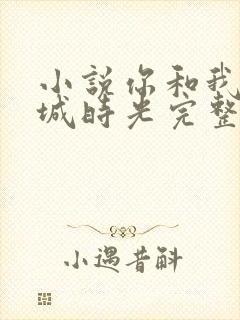 小说你和我
城时光完整
小遇昔斛